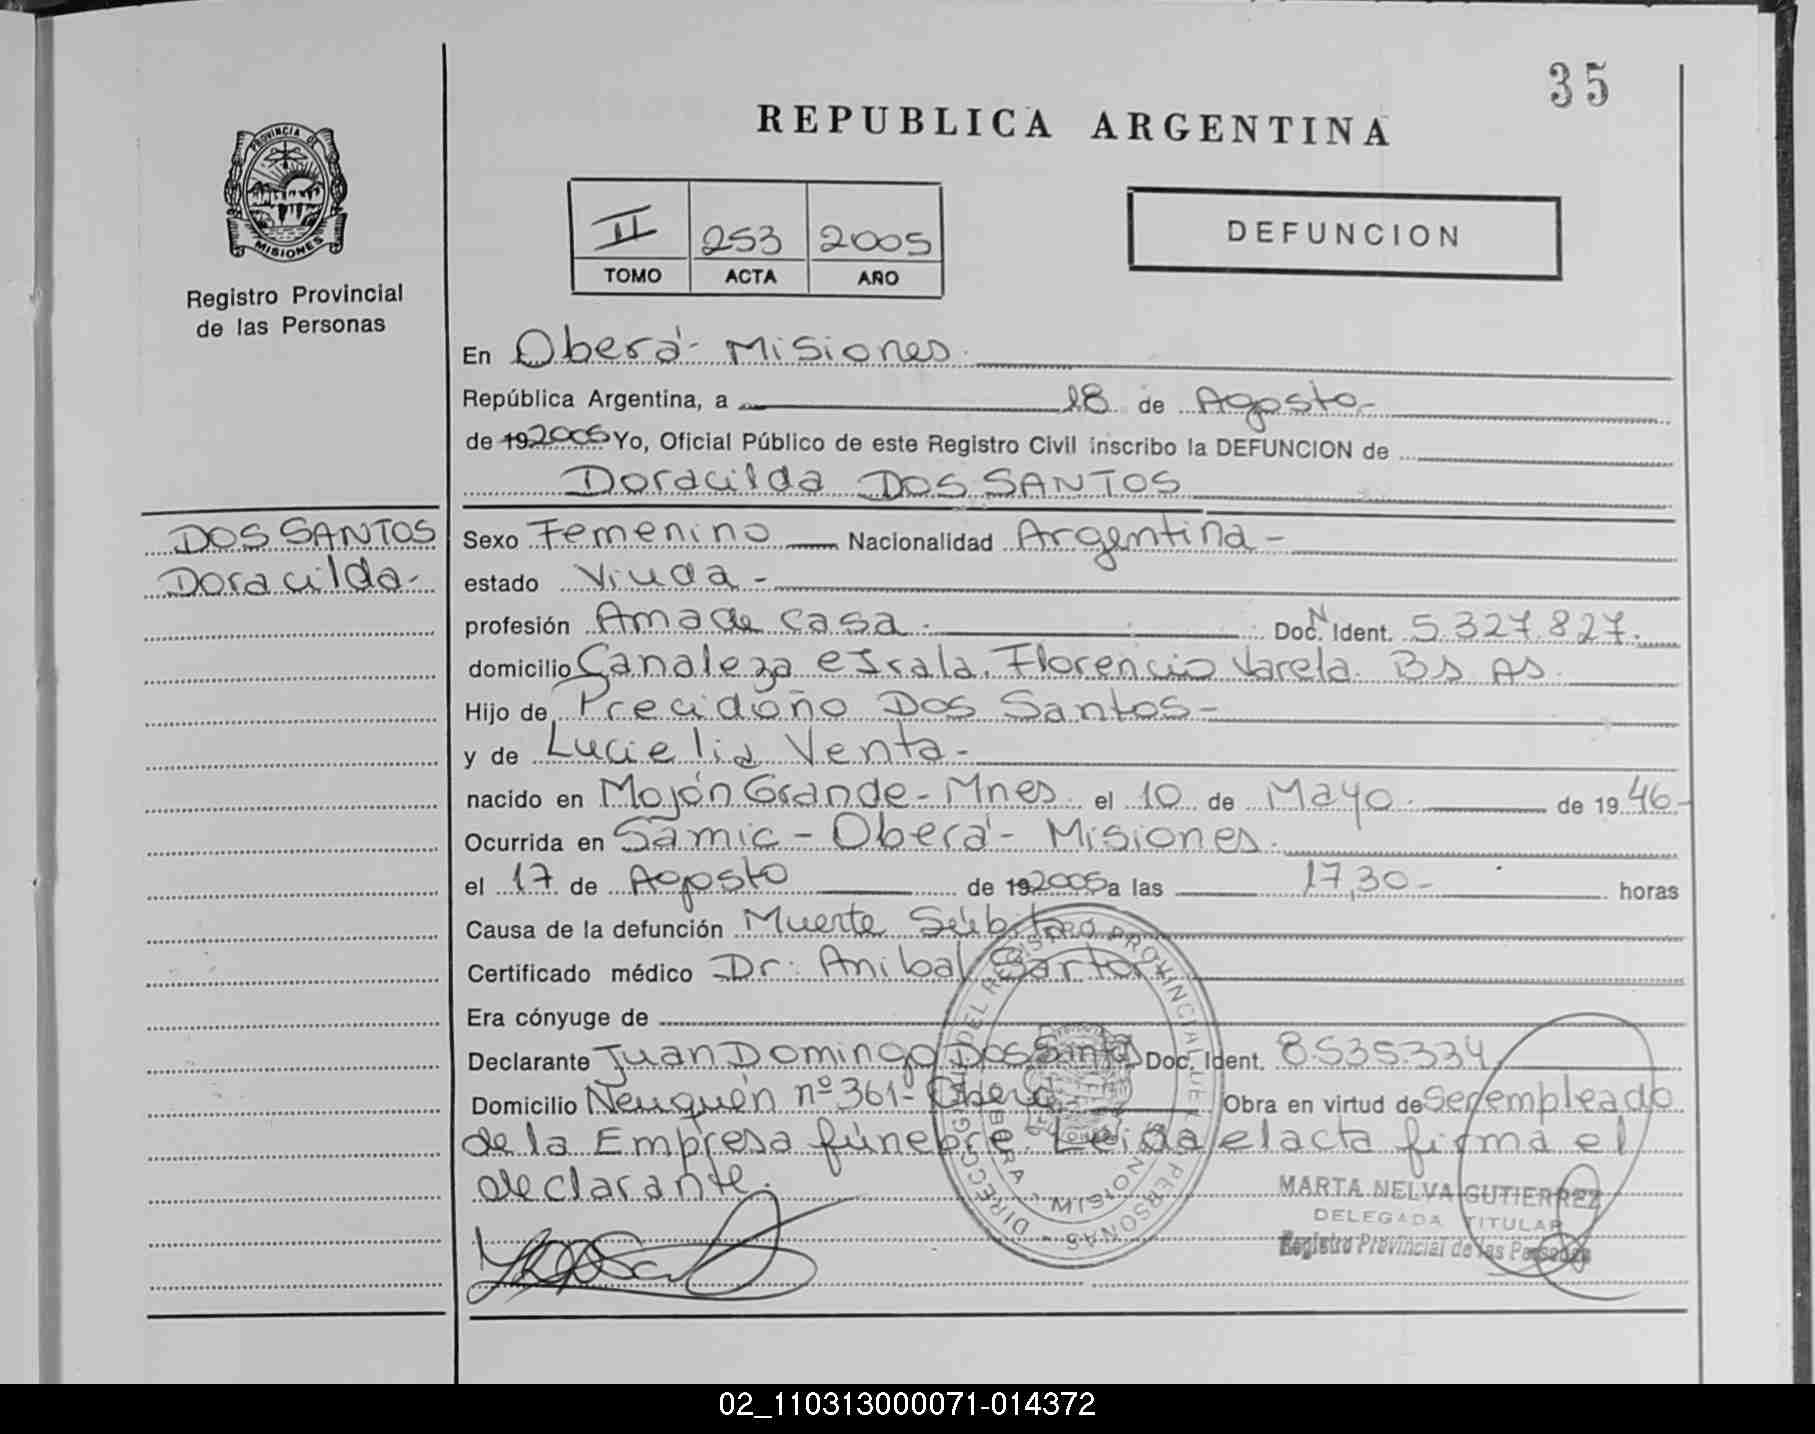 35
REPUBLICA ARGENTINA
PROVINCIA DE
MISIONES
Registro Provincial
de las Personas
II 253 2005
TOMO ACTA AÑO
DEFUNCION
En Oberá - Misiones.
República Argentina, a 18 de Agosto.-
de 19 2005 Yo, Oficial Público de este Registro Civil inscribo la DEFUNCION de
Doracilda DOS SANTOS
DOS SANTOS
Doracilda.-
Sexo Femenino Nacionalidad Argentina -
estado Viuda -
profesión Ama de casa. Doc. N Ident. 5.327.827.
domicilio Canaleza e Israla. Florencio Varela. Bs As.
Hijo de Precidoño Dos Santos -
y de Lucielia Venta -
nacido en Mojón Grande - Mnes. el 10 de Mayo. de 19 46 -
Ocurrida en Samic - Oberá - Misiones.
el 17 de Agosto de 19 2005 a las 17,30 - horas
Causa de la defunción Muerte Súbita
Certificado médico Dr: Anibal Sartori
Era cónyuge de
Declarante Juan Domingo Dos Santos Doc. Ident. 8.535.334
Domicilio Neuquén nº 361 - Oberá Obra en virtud de Ser empleado
de la Empresa fúnebre. Leida el acta firma el
declarante.
DIRECCION DEL REGISTRO PROVINCIAL DE LAS PERSONAS
OBERA - MISIONES
MARTA NELVA GUTIERREZ
DELEGADA TITULAR
Registro Provincial de las Personas
02_110313000071-014372